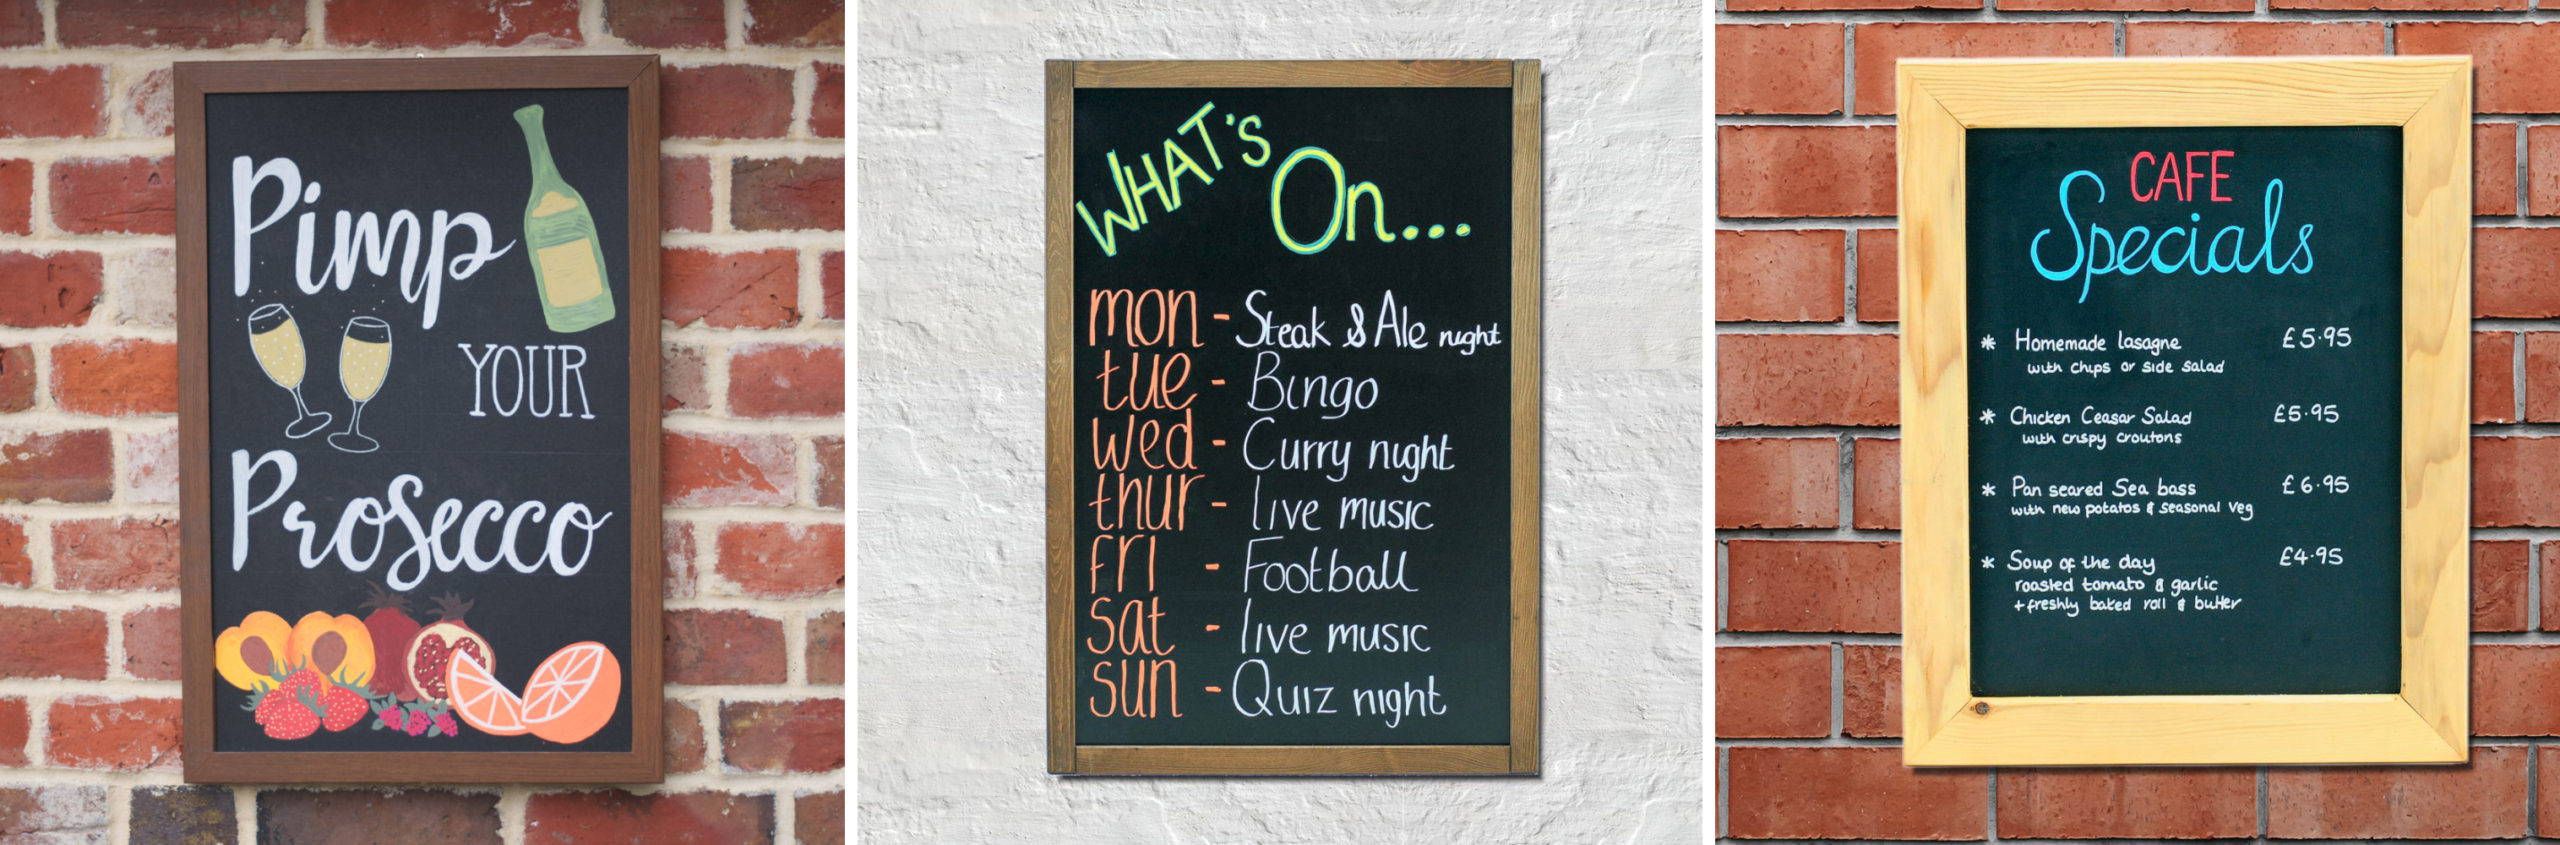 Pimp
YOUR
Prosecco
WHAT'S On...
mon - Steak & Ale night
tue - Bingo
wed - Curry night
thur - live music
frI - Football
sat - live music
sun - Quiz night
CAFE
Specials
* Homemade lasagne £5.95
with chips or side salad
* Chicken Ceasar Salad £5.95
with crispy croutons
* Pan seared Sea bass £6.95
with new potatos & seasonal veg
* Soup of the day £4.95
roasted tomato & garlic
+ freshly baked roll & butter